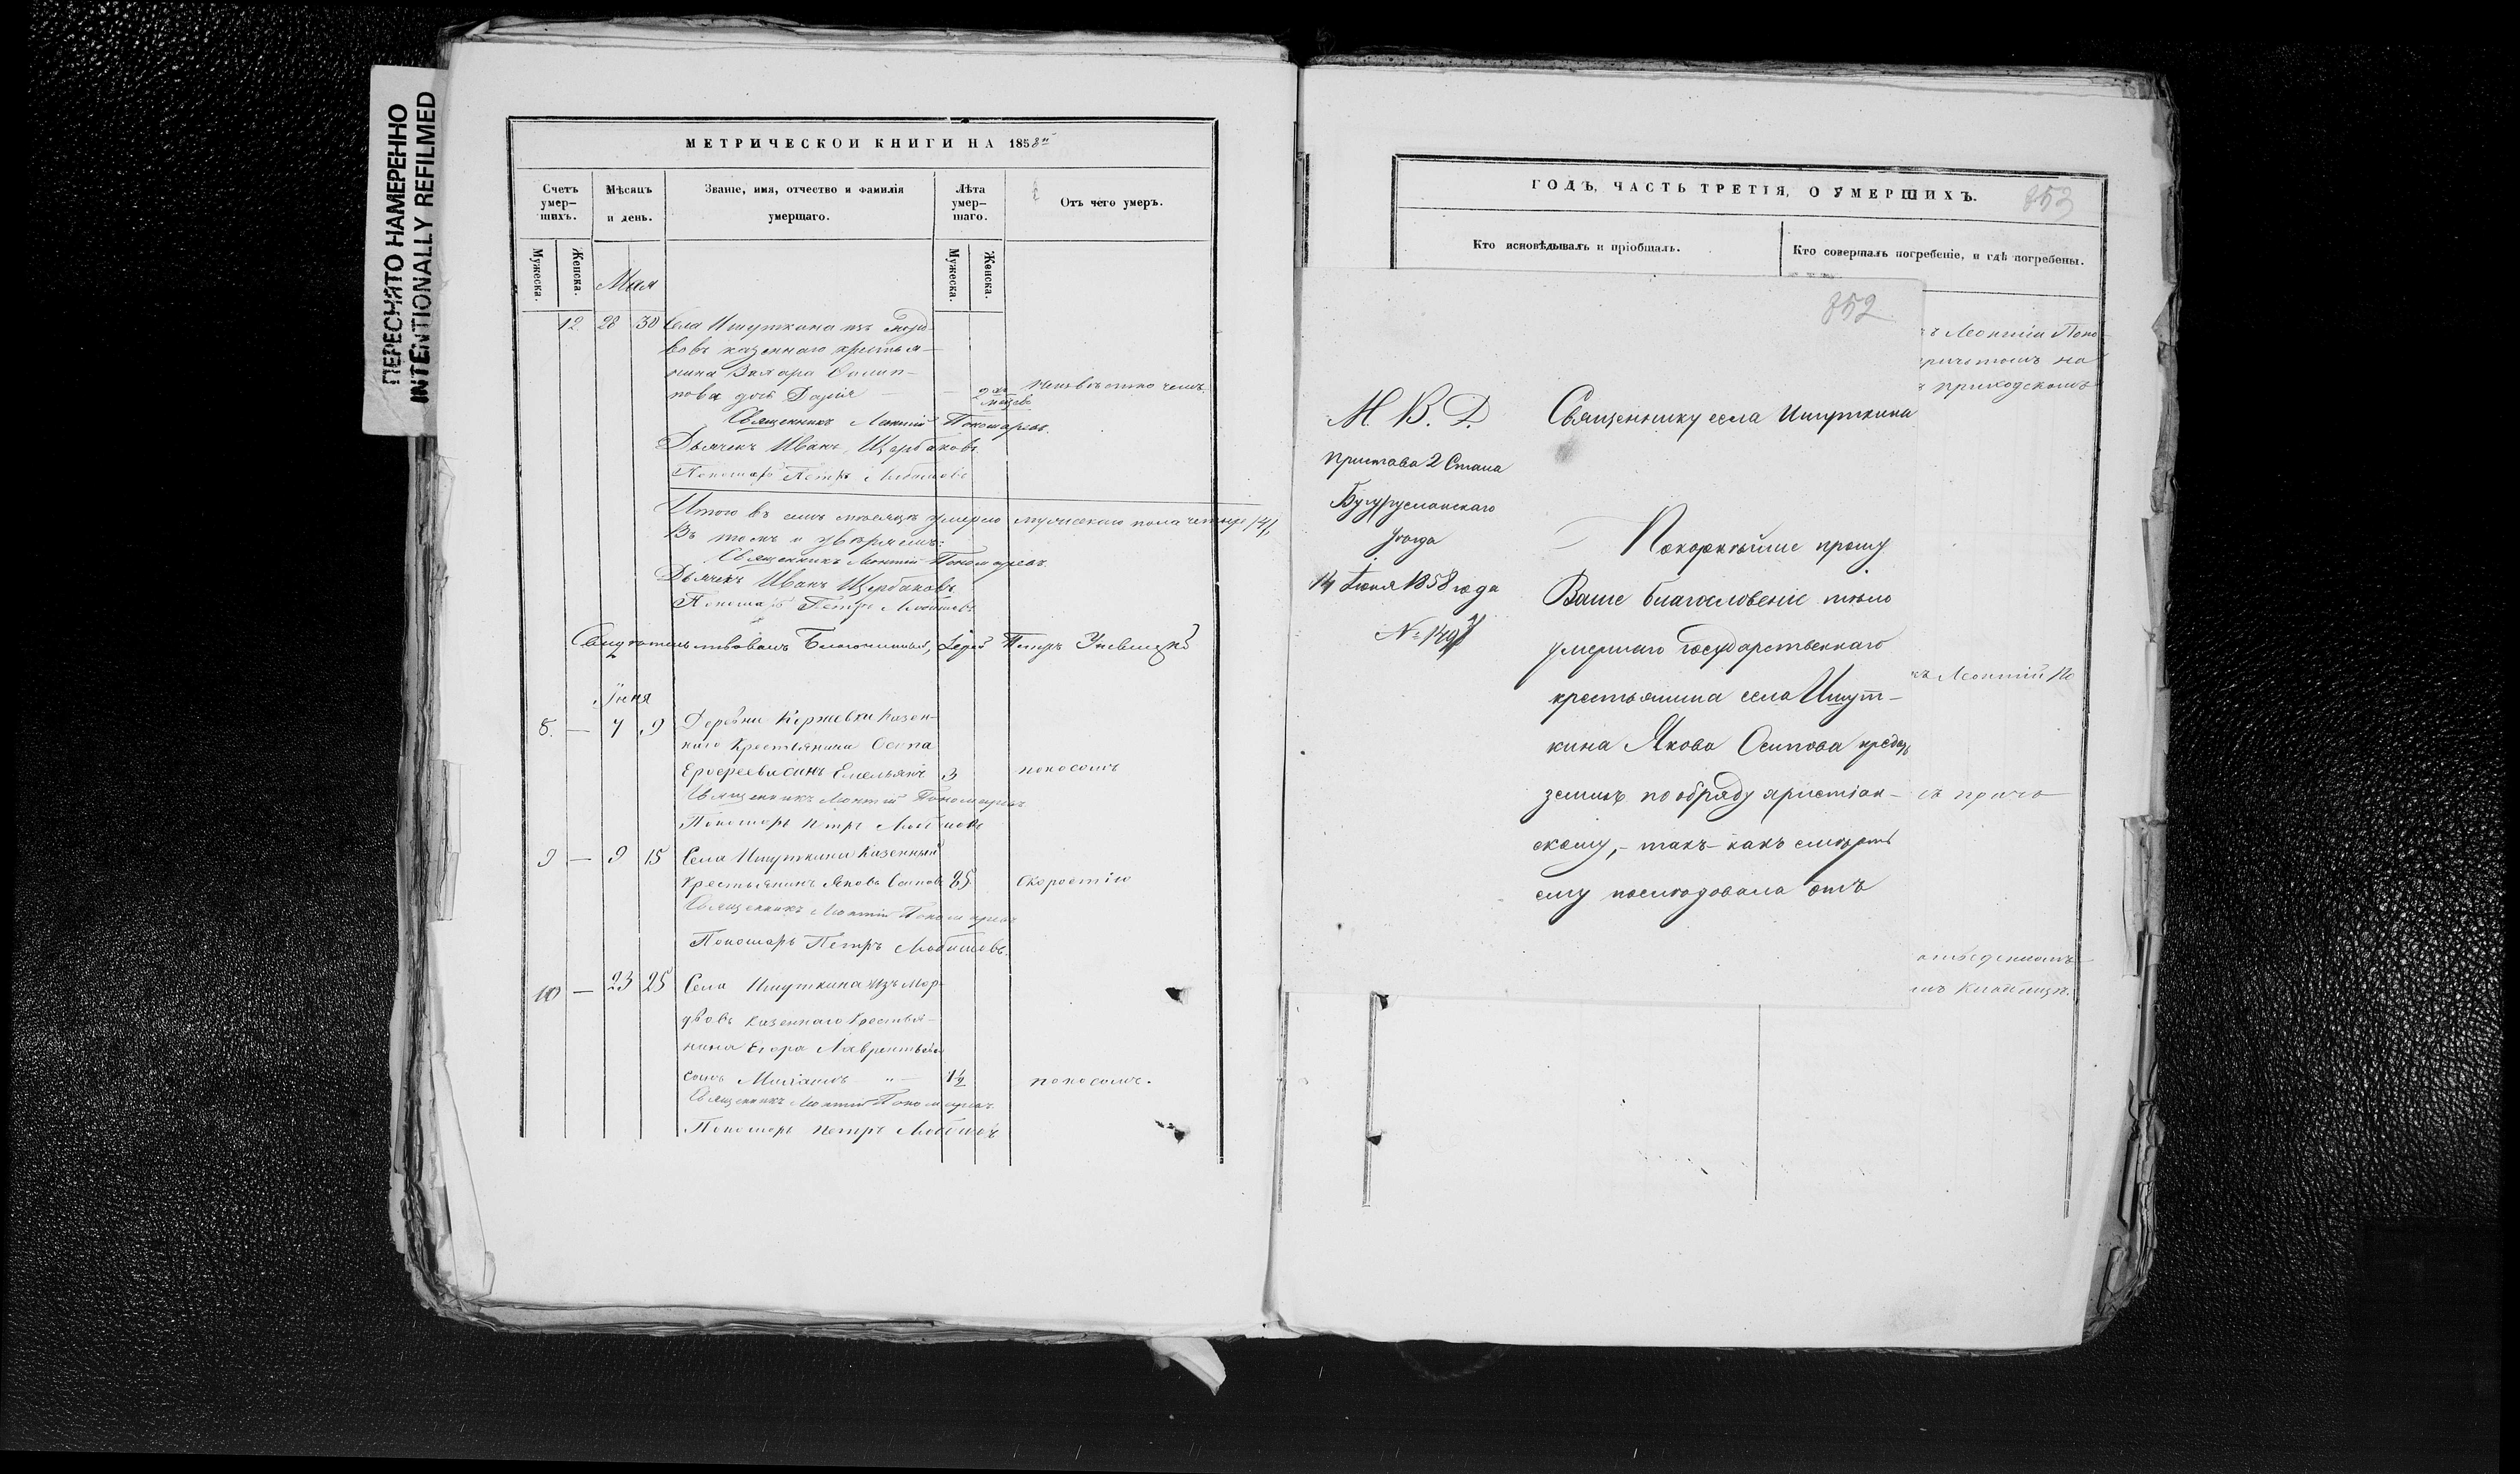 ПЕРЕСНЯТО НАМЕРЕННО
INTENTIONALLY REFILMED
МЕТРИЧЕСКОЙ КНИГИ НА 1858й
Счетъ умер-шихъ.
Мѣсяцъ и день.
Званіе, имя, отчество и фамилія умершаго.
Лѣта умер-шаго.
Отъ чего умеръ.
Мужеска.
Женска.
Мая
Мужеска.
Женска.
12 28 30 Села Ишуткина изъ Морд-
вовъ казеннаго крестья-
нина Осип-
пова дочь Дарія неизвѣстно чемъ
Священникъ Леонтій Пономаревъ.
Дьячекъ Иванъ Щербаковъ
Пономарь Петръ
Итого въ семъ мѣсяцѣ умерло мужескаго пола четыре /4/
Въ томъ и увѣряемъ:
Священникъ Леонтій Пономаревъ.
Дьячекъ Иванъ Щербаковъ
Пономарь Петръ
Свидѣтельствовалъ Благочинный, Іерей Петръ
Іюня
8. — 7 9 Деревни Коржевки Казен-
наго Крестьянина Осипа
Ерофеева сынъ Емельянъ 3 поносомъ
Священникъ Леонтій Пономаревъ
Пономарь Петръ
9 — 9 15 Села Ишуткина Казенный
Крестьянинъ Яковъ Осиповъ 85 Скоростію
Священникъ Леонтій Пономаревъ
Пономарь Петръ
10 — 23 25 Села Ишуткина изъ Мор-
двовъ Казеннаго Крестья-
нина Егора Лаврентьева
сынъ Михаилъ „ — 1½ поносомъ.
Священникъ Леонтій Пономаревъ
Пономарь Петръ
ГОДЪ, ЧАСТЬ ТРЕТІЯ, О УМЕРШИХЪ.
853
Кто исповѣдывалъ и пріобщалъ.
Кто совершалъ погребеніе, и гдѣ погребены.
852
М. В. Д.
Пристава 2 Стана
Бугурусланскаго
уѣзда
14 Іюня 1858 года
Священнику села Ишуткина
Покорнѣйше прошу
Ваше благословеніе тѣло
умершаго Государственнаго
крестьянина села Ишут-
кина Якова Осипова предать
землѣ по обряду христіан-
скому, - такъ какъ смерть
ему послѣдовала отъ
ъ Леонтій Поно
причтомъ на
приходскомъ
ъ Леонтій По
ъ причъ
отведенномъ
мъ Кладбищѣ.